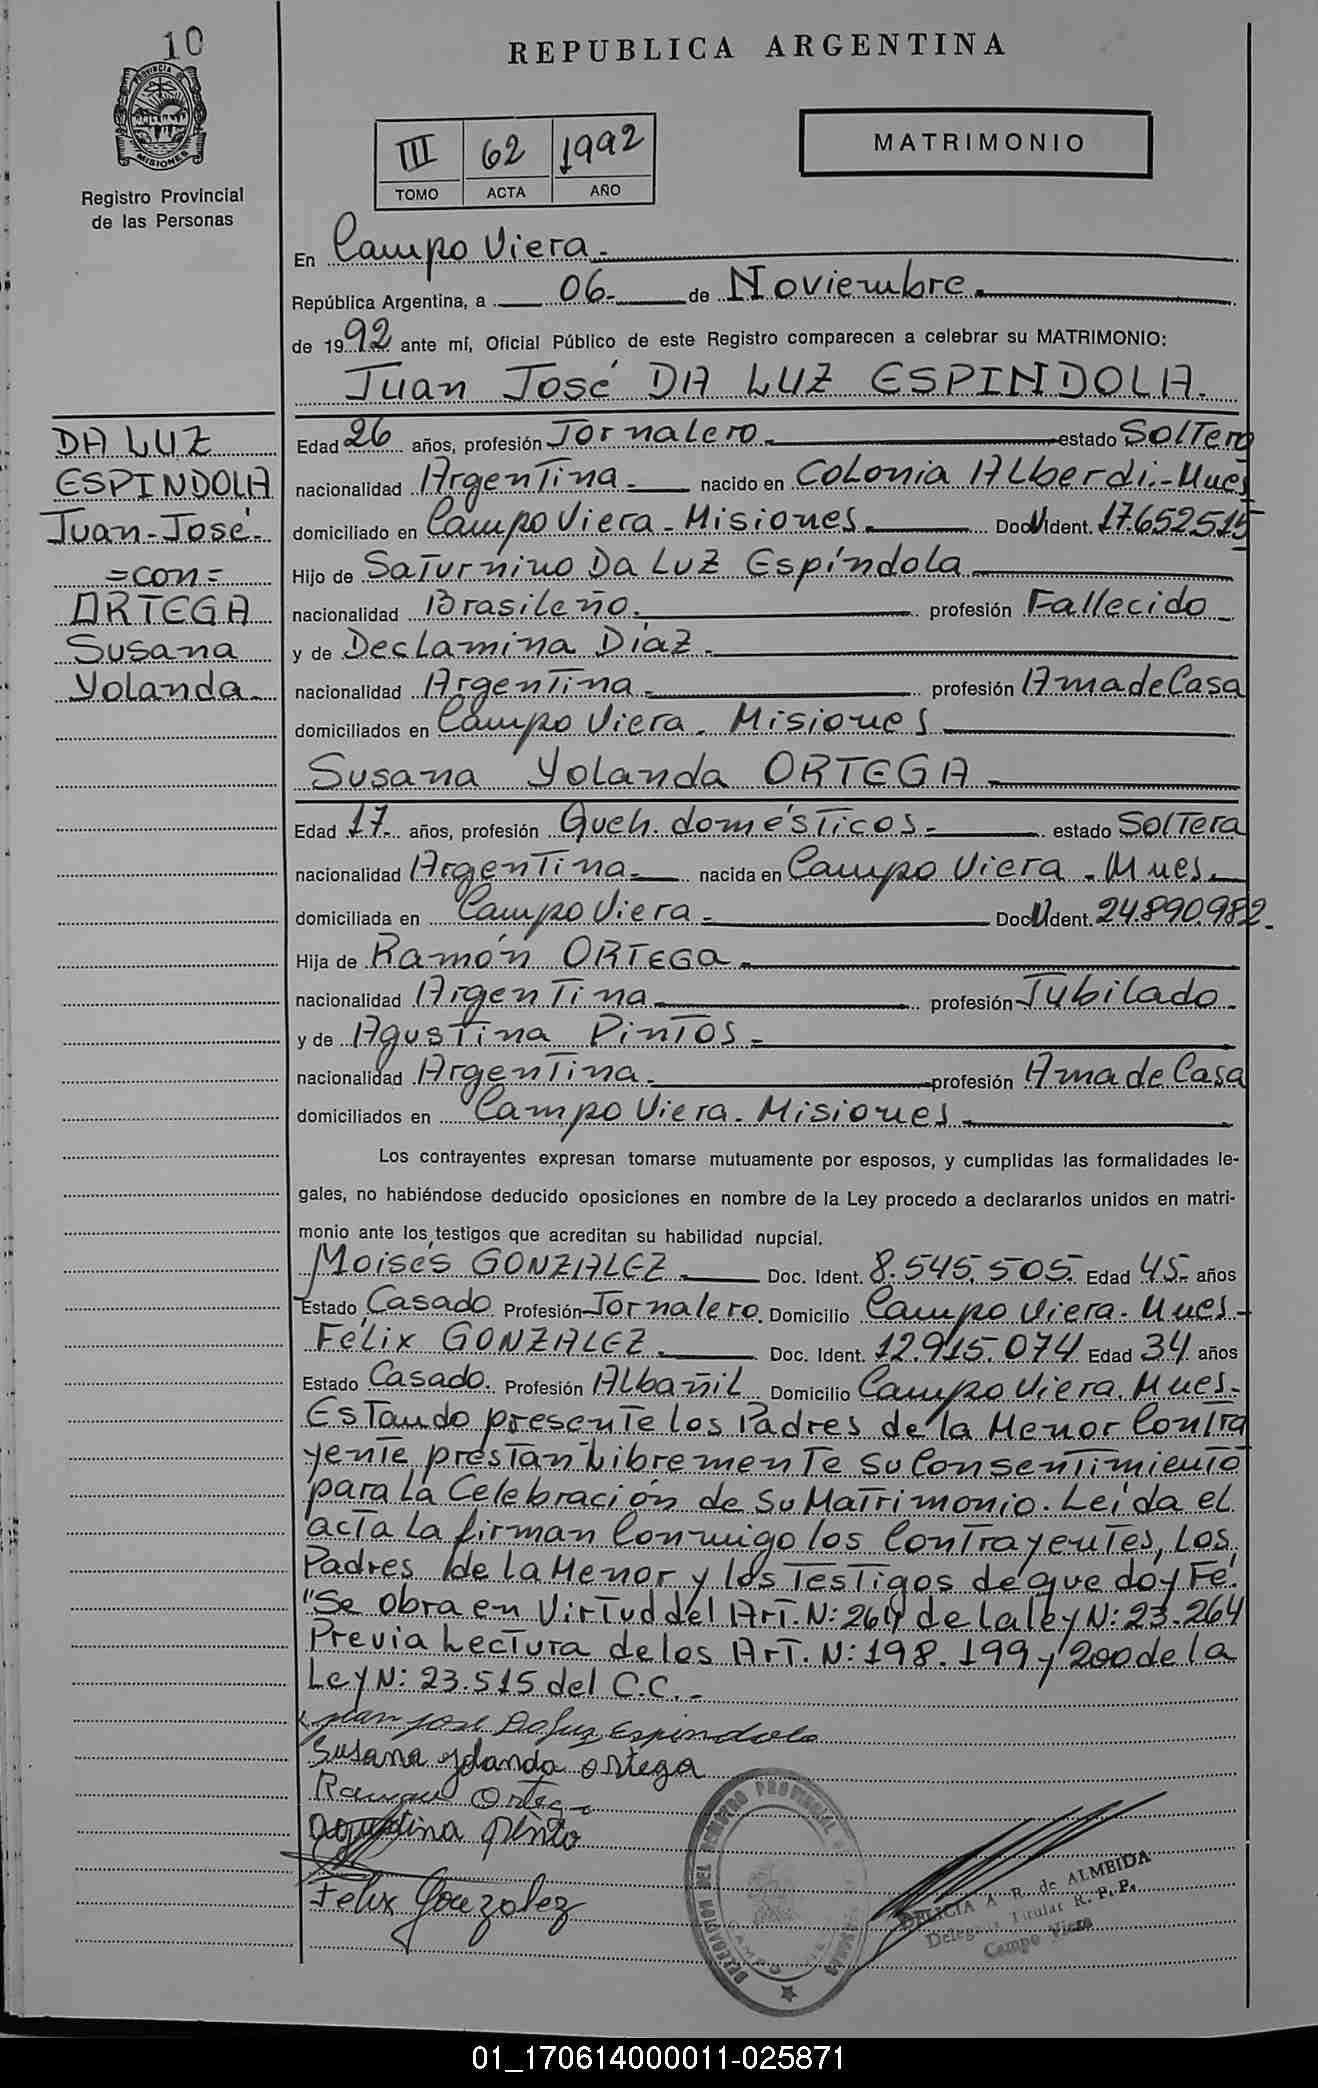 10
REPUBLICA ARGENTINA
PROVINCIA DE
MISIONES
Registro Provincial
de las Personas
III 62 1992
TOMO ACTA AÑO
MATRIMONIO
En Campo Viera.-
República Argentina, a 06.- de Noviembre.-
de 1992 ante mí, Oficial Público de este Registro comparecen a celebrar su MATRIMONIO:
Juan José DA LUZ ESPINDOLA.
DA LUZ
ESPINDOLA
Juan-José.
=con=
ORTEGA
Susana
Yolanda.-
Edad 26 años, profesión Jornalero.- estado Soltero
nacionalidad Argentina.- nacido en Colonia Alberdi.-Mnes
domiciliado en Campo Viera-Misiones.- Doc.N.Ident. 17.652.515
Hijo de Saturnino Da Luz Espíndola
nacionalidad Brasileño.- profesión Fallecido
y de Declamina Díaz.-
nacionalidad Argentina.- profesión Ama de Casa
domiciliados en Campo Viera. Misiones
Susana Yolanda ORTEGA.-
Edad 17.- años, profesión Queh. domésticos.- estado Soltera
nacionalidad Argentina.- nacida en Campo Viera. Mnes.-
domiciliada en Campo Viera.- Doc.N.Ident. 24.890.982.-
Hija de Ramón ORTEGA.-
nacionalidad Argentina.- profesión Jubilado.-
y de Agustina PINTOS.-
nacionalidad Argentina.- profesión Ama de Casa
domiciliados en Campo Viera. Misiones.-
Los contrayentes expresan tomarse mutuamente por esposos, y cumplidas las formalidades le-
gales, no habiéndose deducido oposiciones en nombre de la Ley procedo a declararlos unidos en matri-
monio ante los testigos que acreditan su habilidad nupcial.
Moisés GONZALEZ.- Doc. Ident. 8.545.505. Edad 45.- años
Estado Casado. Profesión Jornalero. Domicilio Campo Viera. Mnes.-
Félix GONZALEZ.- Doc. Ident. 12.915.074 Edad 34 años
Estado Casado. Profesión Albañil Domicilio Campo Viera. Mnes.-
Estando presente los Padres de la Menor Contra
yente prestan libremente su Consentimiento
para la Celebración de su Matrimonio. Leída el
acta la firman Conmigo los Contrayentes, los
Padres de la Menor y los Testigos de que doy Fé.
"Se obra en Virtud del Art. N: 264 de la ley N: 23.264
Previa Lectura de los Art. N: 198. 199 y 200 de la
Ley N: 23.515 del C.C..-
Juan José Da Luz Espindola
Susana Yolanda Ortega
Ramon Ortega
Agustina Pinto
Felix Gonzalez
DELEGACION DEL REGISTRO PROVINCIAL
DELICIA A. R. de ALMEIDA
Delegada Titular R. P. P.
Campo Viera
01_170614000011-025871